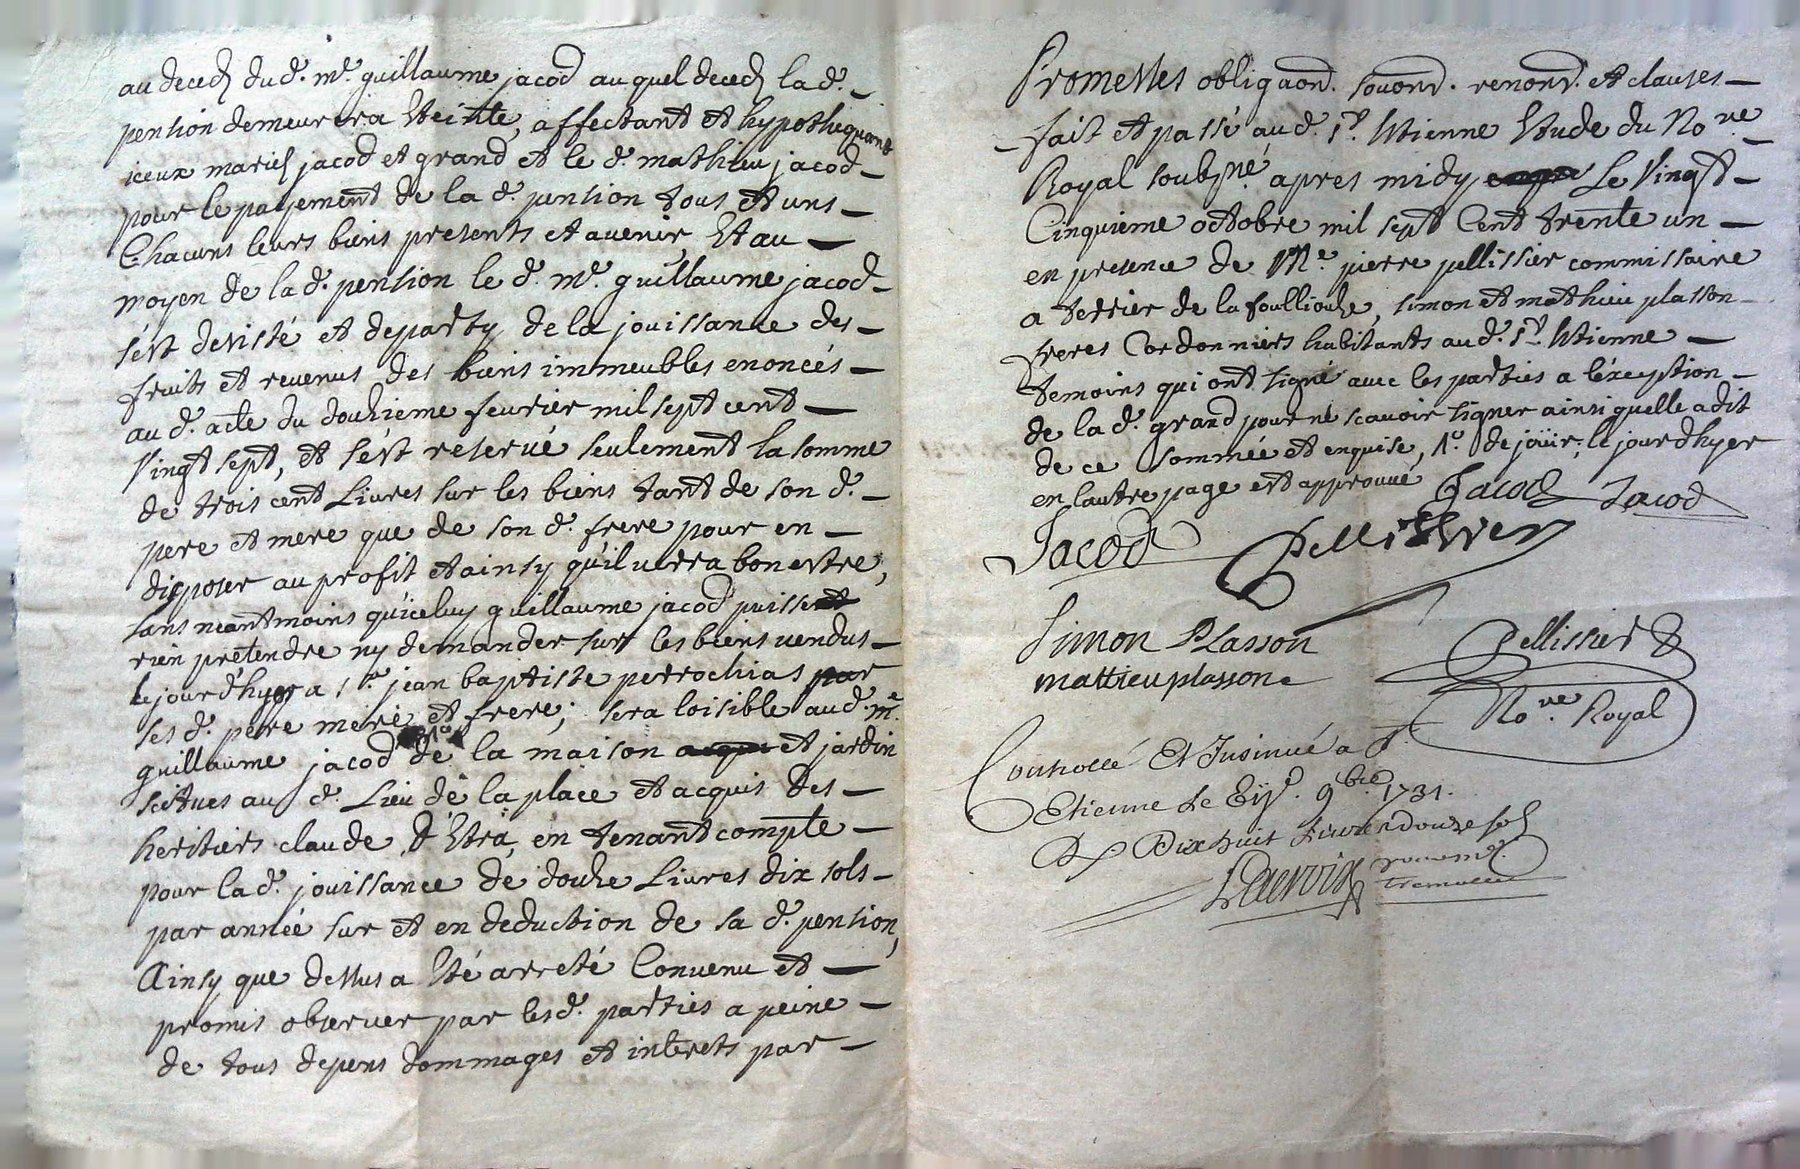 au deced du d.t m.e guillaume jacod auquel deced la d.e
pention demeurera Eteinte, affectant et hypothequant
iceux mariés jacod et grand et le d.t mathieu jacod
pour le payement de la d.e pention tous et uns
Chacuns leurs biens presents et avenir, Et au
moyen de la d.e pention le d.t m.e guillaume jacod
s'est desisté et departy de la jouissance des
fruits et revenus des biens immeubles enoncés
au d.t acte du douzieme fevrier mil sept cent
vingt sept, et s'est reservé seulement la somme
de trois cent Livres sur les biens tant de son d.t
pere et mere que de son d.t frere pour en
disposer au profit et ainsy qu'il verra bon estre,
sans neantmoins qu'iceluy guillaume jacod puisse
rien pretendre ny demander sur les biens vendus
le jour d'hyer a s.r jean baptiste perrochias par
ses d.t pere mere et frere; sera loisible au d.t m.e
guillaume jacod 1.o de la maison et jardin
scitues au d.t Lieu de la place et acquis des
heritiers claude D'Etra, en tenant compte
pour la d.e jouissance de douze Livres dix sols
par année sur et en deduction de sa d.e pention,
Ainsy que dessus a Eté arreté Convenu et
promis observer par les d.t parties a peine
de tous depens dommages et interets par
Promesses obligaõns. soũons. renons. et clauses
fait et passé au d.t S.t Etienne Etude du No.re
Royal soubsné apres midy Le Vingt
Cinquieme octobre mil sept Cent trente un
en presence de M.e pierre pellissier commissaire
a terrier de la foulliouze, simon et mathieu plasson
freres Cordonniers habitants au d.t S.t Etienne
temoins qui ont signé avec les parties a l'exception
de la d.e grand pour ne scavoir signer ainsi quelle a dit
de ce sommée et enquise, 1.o de joüir; le jour d'hyer
en lautre page est approuvé Jacod Jacod
Jacod Pellissier
Simon Plasson
mattieu plasson
Pellissier
No.re Royal
Controllé Et Insinué a S.t
Etienne Le 9.bre 1731.
Dix huit Livres douze sols